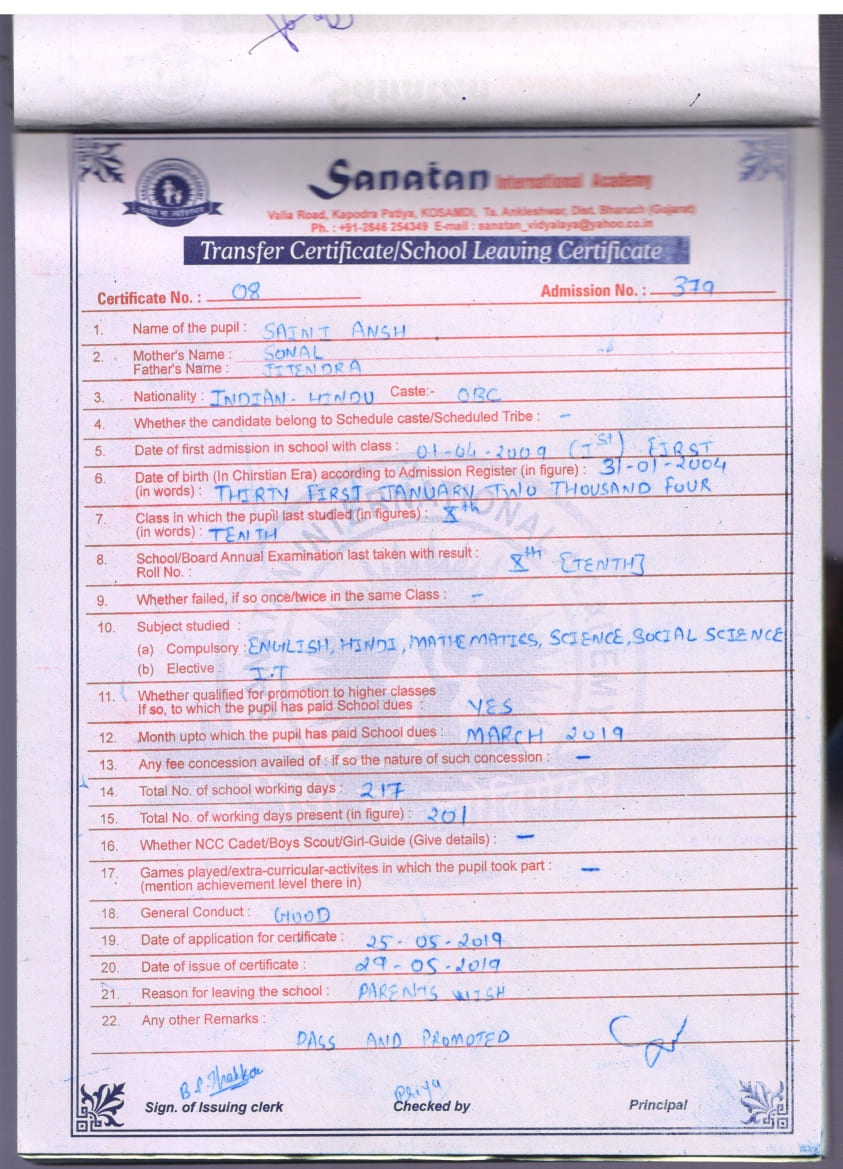 Sanatan International Academy
Valia Road, Kapodra Patiya, KOSAMDI, Ta. Ankleshwar, Dist. Bharuch (Gujarat)
Ph. : +91-2646 254349 E-mail : sanatan_vidyalaya@yahoo.co.in
Transfer Certificate/School Leaving Certificate
Certificate No. : 08 Admission No. : 379
1. Name of the pupil : SAINI ANSH
2. Mother's Name : SONAL
Father's Name : JITENDRA
3. Nationality : INDIAN - HINDU Caste:- OBC
4. Whether the candidate belong to Schedule caste/Scheduled Tribe : -
5. Date of first admission in school with class : 01-04-2009 (Ist) FIRST
6. Date of birth (In Chirstian Era) according to Admission Register (in figure) : 31-01-2004
(in words) : THIRTY FIRST JANUARY TWO THOUSAND FOUR
7. Class in which the pupil last studied (in figures) : Xth
(in words) : TENTH
8. School/Board Annual Examination last taken with result : Xth [TENTH]
Roll No. :
9. Whether failed, if so once/twice in the same Class : -
10. Subject studied :
(a) Compulsory : ENGLISH, HINDI, MATHEMATICS, SCIENCE, SOCIAL SCIENCE
(b) Elective : I.T
11. Whether qualified for promotion to higher classes
If so, to which the pupil has paid School dues : YES
12. Month upto which the pupil has paid School dues : MARCH 2019
13. Any fee concession availed of : if so the nature of such concession : -
14. Total No. of school working days : 217
15. Total No. of working days present (in figure) : 201
16. Whether NCC Cadet/Boys Scout/Girl-Guide (Give details) : -
17. Games played/extra-curricular-activites in which the pupil took part : -
(mention achievement level there in)
18. General Conduct : GOOD
19. Date of application for certificate : 25-05-2019
20. Date of issue of certificate : 29-05-2019
21. Reason for leaving the school : PARENTS WISH
22. Any other Remarks :
PASS AND PROMOTED
B.P. Thakkar Priya
Sign. of Issuing clerk Checked by Principal